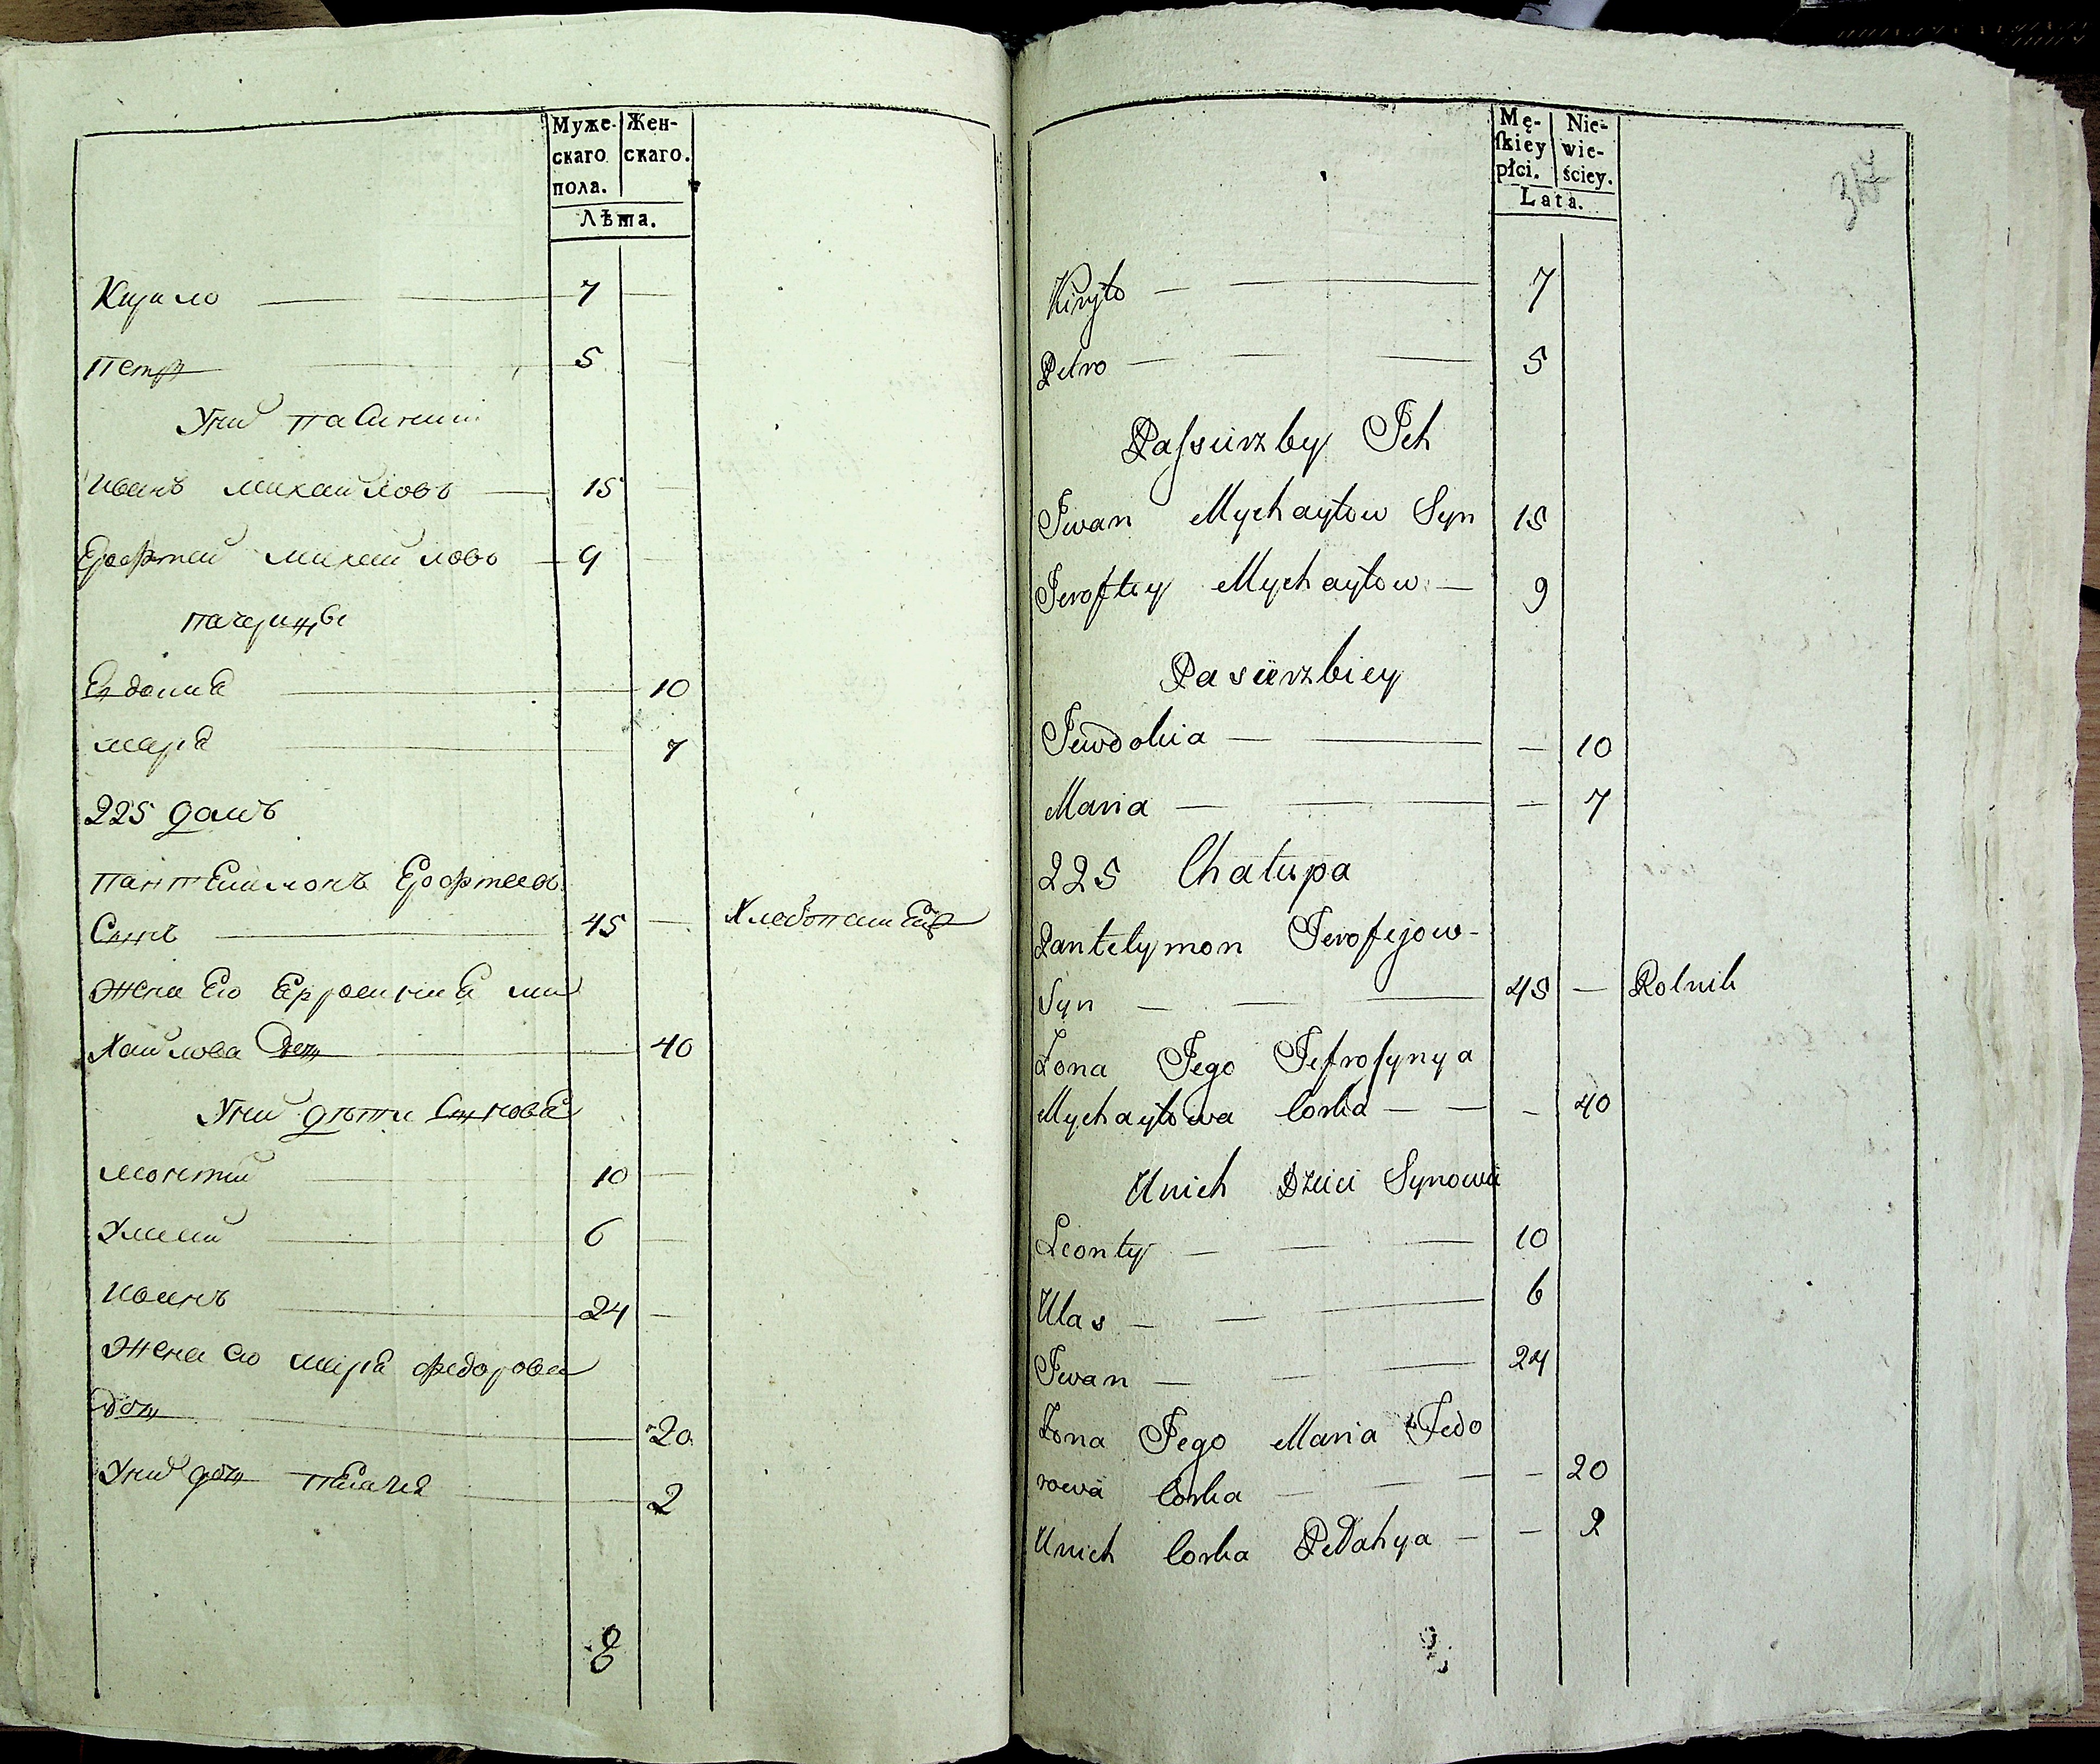 Муже-
скаго
пола.
Жен-
скаго.
Лѣта.
Кирило 7
Петръ 5
Унихъ пасинки
Иванъ Михайловъ 15
Ерофтей Михайловъ 9
пачерицы
Евдокиа 10
Мариа 7
225 домъ
Пантелимонъ Ерофтеевъ
Сынъ 45 — Хлебопашецъ
Жена Его Ефросиниа Ми
хайлова Дочь 40
Унихъ дѣти Сыновья
Леонтий 10
Улас 6
Иванъ 24
Жена его Мариа Федорова
дочь 20
Унихъ дочь Пелагия 2
8
Mę-
ſkiey
płci.
Nie-
wie-
ściey.
Lata.
317
Kiryło — — 7
Petro — — — 5
Paſsürzby Ich
Iwan Mychayłow Syn 15
Ieroftey Mychayłow — 9
Pasürzbiey
Iewdokia — — — 10
Maria — — — 7
225 Chałupa
Pantelymon Ierofejow-
Syn — — — 45 — Rolnik
Żona Iego Iefroſynya
Mychayłowa Corka — — — 40
Unich Dzieci Synowie
Leonty — — — 10
Ulas — — — 6
Iwan — — — 24
Żona Iego Maria Fedo
rowa Corka — — — — 20
Unich Corka Pelahya — — 2